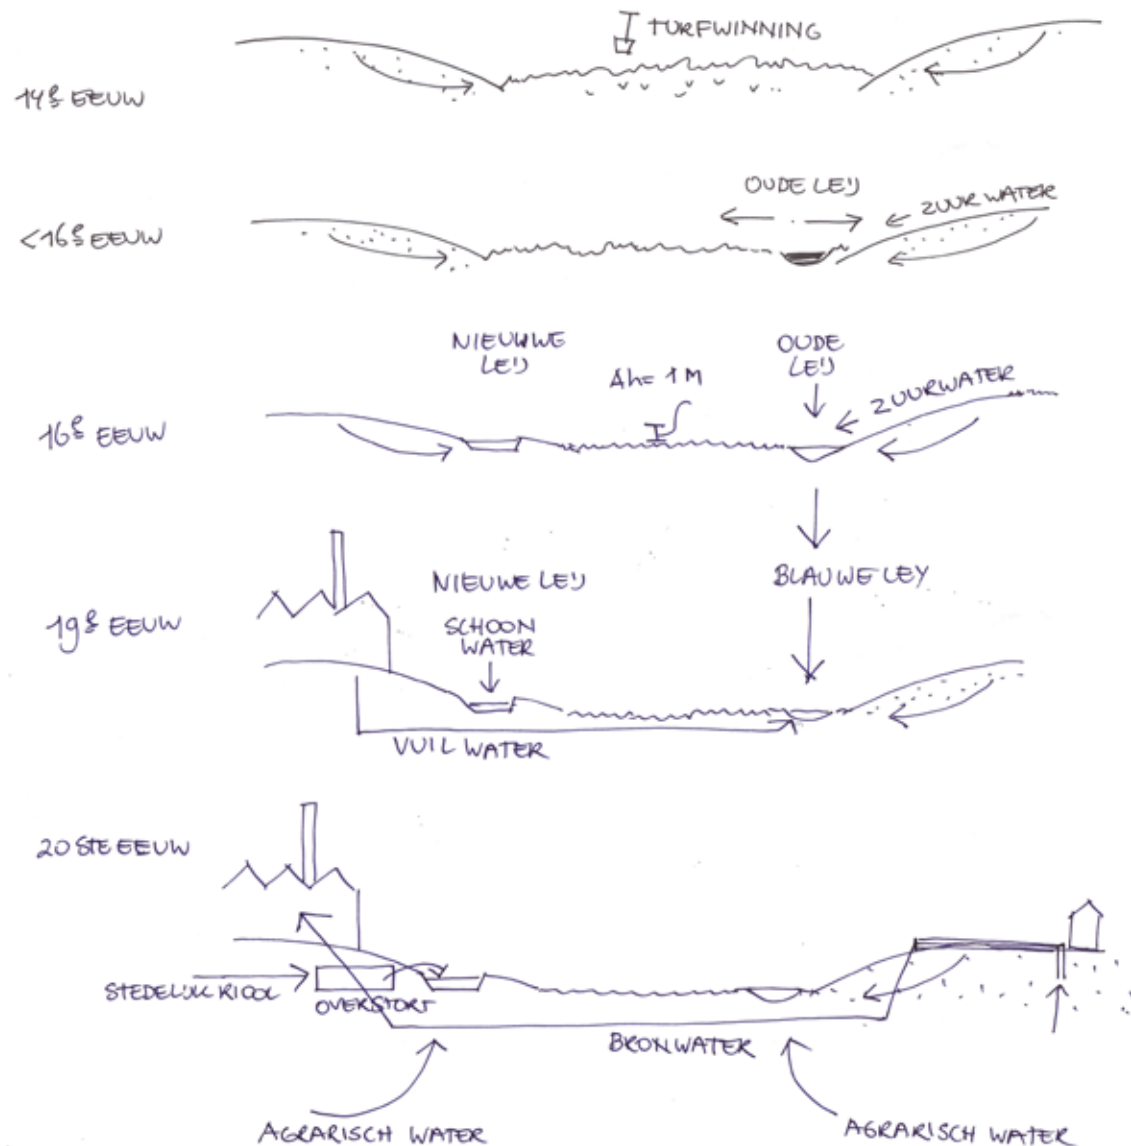 TURFWINNING
14E EEUW
OUDE LEIJ
ZUUR WATER
<16E EEUW
NIEUWE
LEIJ
OUDE
LEIJ
Δh= 1 M
ZUURWATER
16E EEUW
NIEUWE LEIJ
BLAUWE LEY
19E EEUW
SCHOON
WATER
VUIL WATER
20STE EEUW
STEDELIJK RIOOL
OVERSTORT
BRONWATER
AGRARISCH WATER
AGRARISCH WATER